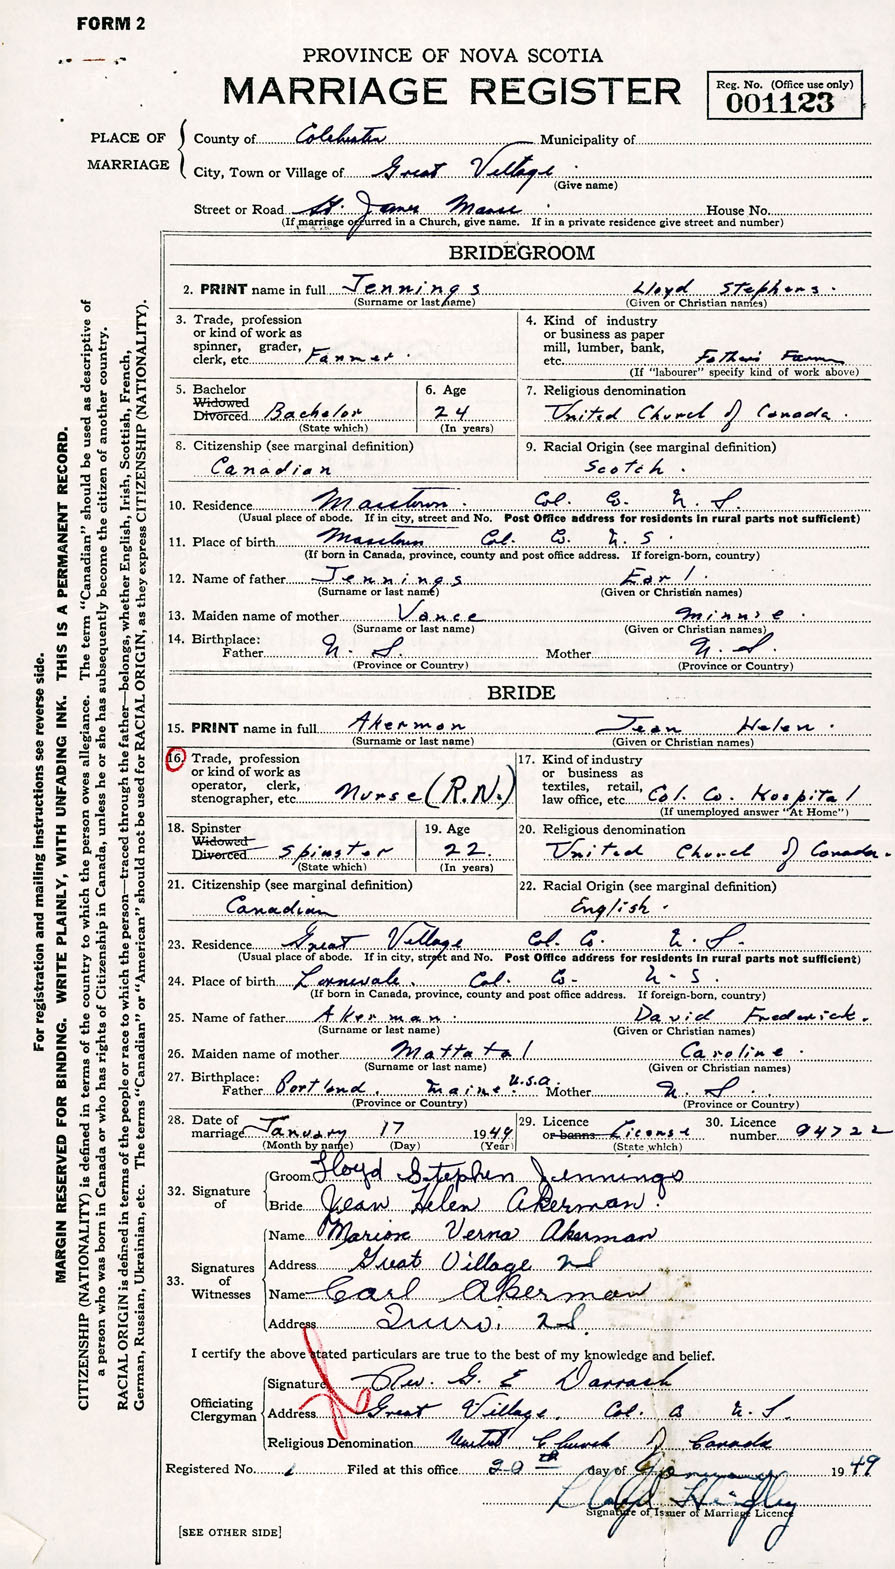 FORM 2
PROVINCE OF NOVA SCOTIA
MARRIAGE REGISTER
Reg. No. (Office use only)
001123
PLACE OF MARRIAGE
County of Colchester Municipality of
City, Town or Village of Great Village
(Give name)
Street or Road St. James Manse House No.
(If marriage occurred in a Church, give name. If in a private residence give street and number)
BRIDEGROOM
2. PRINT name in full Jennings Lloyd Stephens.
(Surname or last name) (Given or Christian names)
3. Trade, profession or kind of work as spinner, grader, clerk, etc. Farmer.
4. Kind of industry or business as paper mill, lumber, bank, etc. Father's Farm
(If "labourer" specify kind of work above)
5. Bachelor Widowed Divorced Bachelor
(State which)
6. Age 24
(In years)
7. Religious denomination
United Church of Canada.
8. Citizenship (see marginal definition)
Canadian
9. Racial Origin (see marginal definition)
Scotch.
10. Residence Masstown. Col. Co. N. S.
(Usual place of abode. If in city, street and No. Post Office address for residents in rural parts not sufficient)
11. Place of birth Masstown Col. Co. N. S.
(If born in Canada, province, county and post office address. If foreign-born, country)
12. Name of father Jennings Earl.
(Surname or last name) (Given or Christian names)
13. Maiden name of mother Vance Minnie.
(Surname or last name) (Given or Christian names)
14. Birthplace:
Father N. S. Mother N. S.
(Province or Country) (Province or Country)
BRIDE
15. PRINT name in full Akerman Jean Helen.
(Surname or last name) (Given or Christian names)
16. Trade, profession or kind of work as operator, clerk, stenographer, etc. Nurse (R.N.)
17. Kind of industry or business as textiles, retail, law office, etc. Col. Co. Hospital
(If unemployed answer "At Home")
18. Spinster Widowed Divorced Spinster
(State which)
19. Age 22.
(In years)
20. Religious denomination
United Church of Canada.
21. Citizenship (see marginal definition)
Canadian
22. Racial Origin (see marginal definition)
English.
23. Residence Great Village Col. Co. N. S.
(Usual place of abode. If in city, street and No. Post Office address for residents in rural parts not sufficient)
24. Place of birth Lornevale. Col. Co. N. S.
(If born in Canada, province, county and post office address. If foreign-born, country)
25. Name of father Akerman. David Frederick.
(Surname or last name) (Given or Christian names)
26. Maiden name of mother Mattatal Caroline.
(Surname or last name) (Given or Christian names)
27. Birthplace:
Father Portland. Maine U.S.A. Mother N. S.
(Province or Country) (Province or Country)
28. Date of marriage January 17 1949
(Month by name) (Day) (Year)
29. Licence or banns License
(State which)
30. Licence number 94722
32. Signature of
Groom Lloyd Stephen Jennings
Bride Jean Helen Akerman.
33. Signatures of Witnesses
Name Marion Verna Akerman
Address Great Village NS
Name Carl Akerman
Address Truro. NS.
I certify the above stated particulars are true to the best of my knowledge and belief.
Officiating Clergyman
Signature Rev. G. E. Darrach
Address Great Village. Col. Co N. S.
Religious Denomination United Church of Canada
Registered No. 1 Filed at this office 20th day of January 1949
Lloyd Hingley
Signature of Issuer of Marriage Licence
[SEE OTHER SIDE]
For registration and mailing instructions see reverse side.
MARGIN RESERVED FOR BINDING. WRITE PLAINLY, WITH UNFADING INK. THIS IS A PERMANENT RECORD.
CITIZENSHIP (NATIONALITY) is defined in terms of the country to which the person owes allegiance. The term "Canadian" should be used as descriptive of
a person who was born in Canada or who has rights of Citizenship in Canada, unless he or she has subsequently become the citizen of another country.
RACIAL ORIGIN is defined in terms of the people or race to which the person—traced through the father—belongs, whether English, Irish, Scottish, French,
German, Russian, Ukrainian, etc. The terms "Canadian" or "American" should not be used for RACIAL ORIGIN, as they express CITIZENSHIP (NATIONALITY).